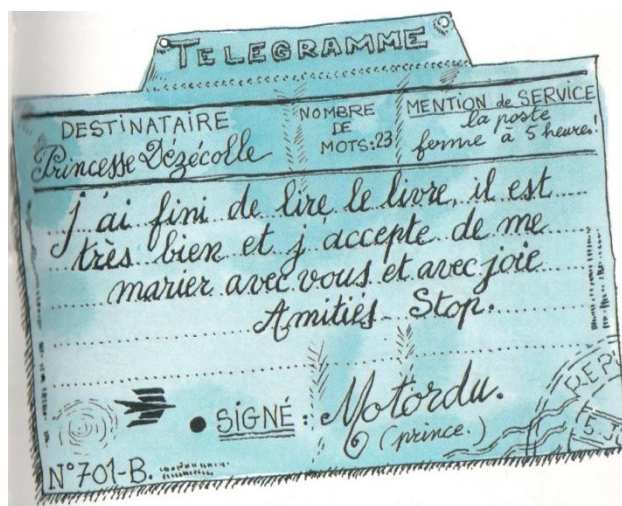 TELEGRAMME
DESTINATAIRE
Princesse Dézécolle
NOMBRE
DE
MOTS: 23
MENTION de SERVICE
la poste
ferme à 5 heures!
j'ai fini de lire le livre, il est
très bien et j'accepte de me
marier avec vous et avec joie
Amitiés Stop.
SIGNÉ : Motordu.
(prince.)
N°701-B.
REP
5 J